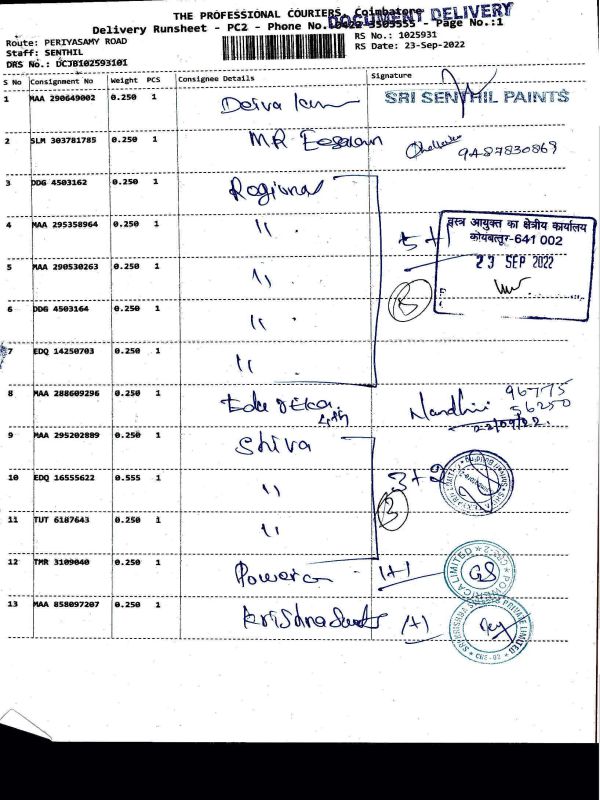 THE PROFESSIONAL COURIERS, Coimbatore
DOCUMENT DELIVERY
Delivery Runsheet - PC2 - Phone No. 3505555 - Page No.:1
Route: PERIYASAMY ROAD
RS No.: 1025931
Staff: SENTHIL
RS Date: 23-Sep-2022
DRS No.: DCJB102593101
S No Consignment No Weight PCS Consignee Details Signature
1 MAA 290649002 0.250 1 SRI SENTHIL PAINTS
2 SLM 303781785 0.250 1 MR 9487830869
3 DDG 4503162 0.250 1 Regional
4 MAA 295358964 0.250 1 〃 5+1
5 MAA 290530263 0.250 1 〃
6 DDG 4503164 0.250 1 〃
7 EDQ 14250703 0.250 1 〃
का क्षेत्रीय कार्यालय
कोयम्बत्तूर-641 002
23 SEP 2022
8 MAA 288609296 0.250 1 Nandhini 96775
56250
22/09/22.
9 MAA 295202889 0.250 1 Shiva
10 EDQ 16555622 0.555 1 〃 3+2
11 TUT 6187643 0.250 1 〃
12 TMR 3109040 0.250 1 1+1
13 MAA 858097207 0.250 1 Krishna 1+1